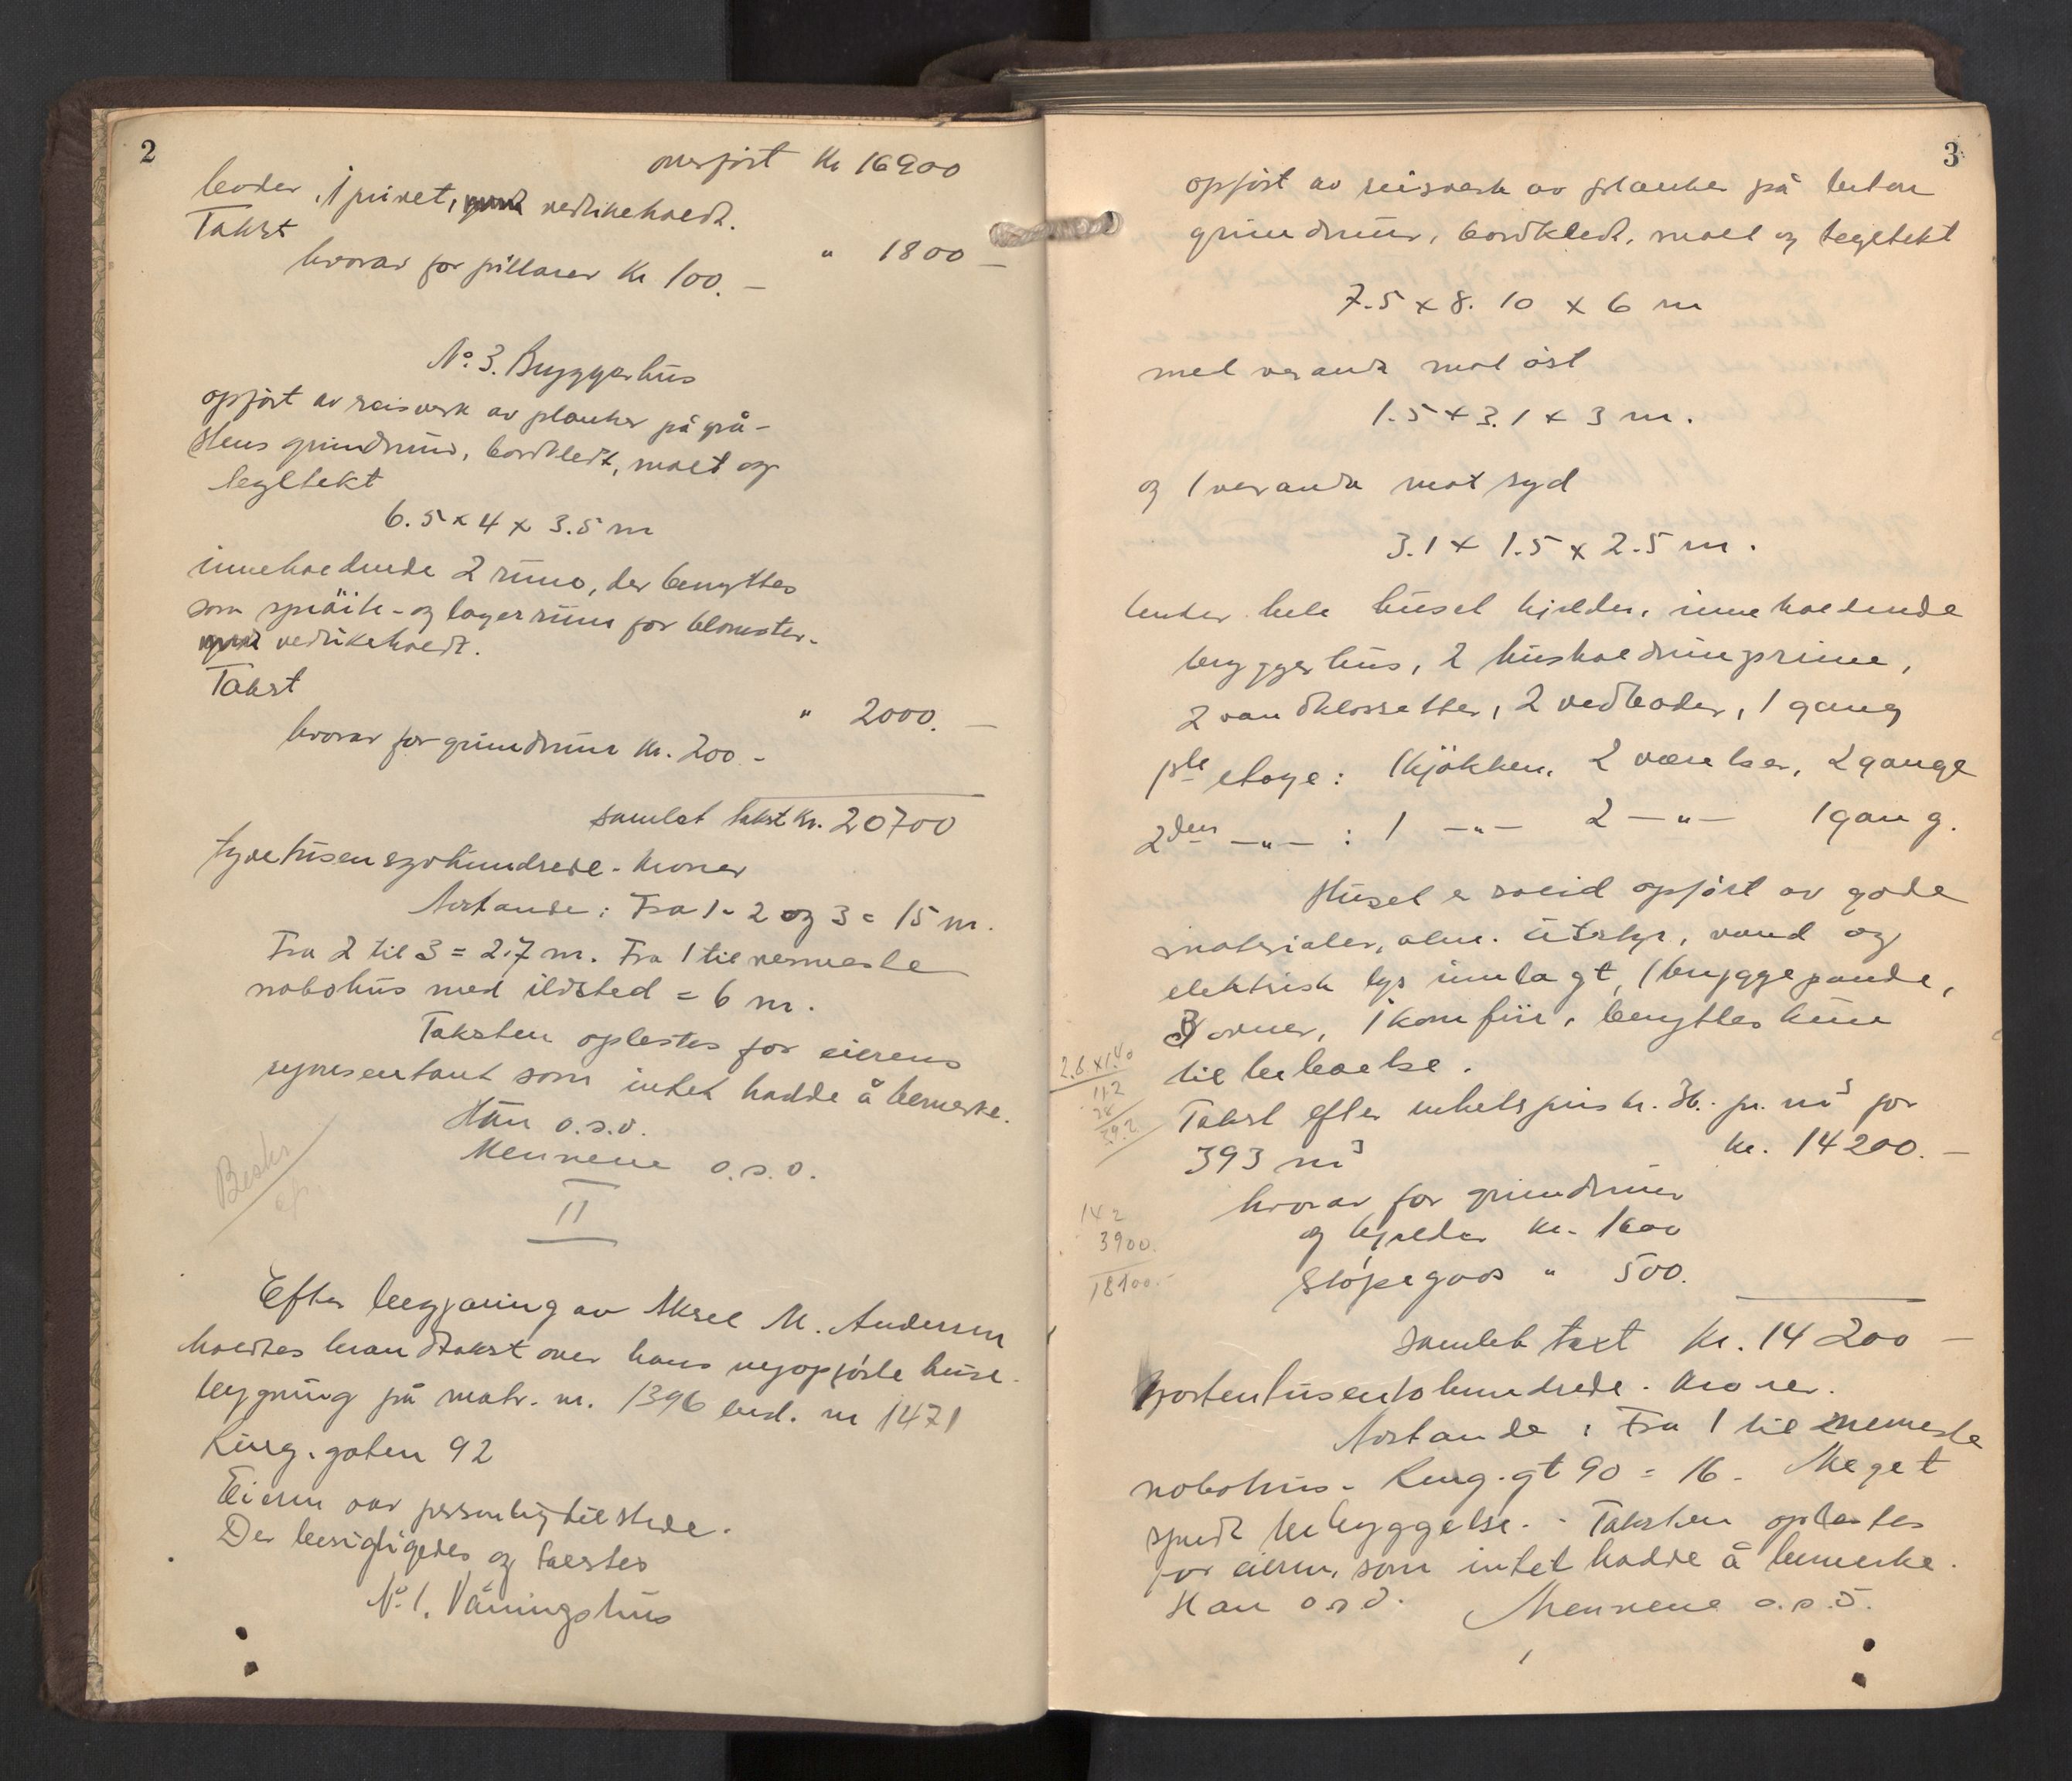 2
overført Kr 16900
boder, 1 privet, vedlikeholdt.
Takst " 1800 —
hvorav for pillarer Kr 100. —
No. 3. Bryggerhus
opført av reisverk av planker på grå-
stens grundmur, bordkledt, malt og
tegltekt
6.5 x 4 x 3.5 m
inneholdende 2 rum, der benyttes
som og lagerrum for blomster.
vedlikeholdt.
Takst
" 2000. —
hvorav for grundmur Kr. 200. -
samlet takst Kr. 20700
tyvetusensyvhundrede - kroner
Avstande: Fra 1 - 2 og 3 = 15 m.
Fra 2 til 3 = 2.7 m. Fra 1 til nermeste
nabohus med ildsted = 6 m.
Taksten oplestes for eierens
representant som intet hadde å bemerke.
Han o.s.v.
Mennene o.s.v.
Beskr
II
Efter begjæring av Aksel M. Andersen
holdtes brandtakst over hans nyopførte hus-
bygning på matr. nr. 1396 nr 1471
Ring. gaten 92
Eieren var personlig tilstede.
Der besigtigedes og taxtes
No. 1. Våningshus
3
opført av reisverk av planker på beton
grundmur, bordkledt, malt og tegltekt
7.5 x 8.10 x 6 m
med veranda mot øst
1.5 x 3.1 x 3 m.
og 1 veranda mot syd
3.1 x 1.5 x 2.5 m.
Under hele huset kjelder, inneholdende
bryggerhus, 2 husholdningsrum,
2 vandklossetter, 2 vedboder, 1 gang
1ste etage: 1 kjøkken, 2 værelser, 2 gange
2den —"— : 1 —"— 2 —"— 1 gang.
Huset e solid opført av gode
materialer, alm. utstyr, vand og
elektrisk lys innlagt, 1 bryggepande,
3 ovner, 1 komfur, benyttes kun
til beboelse.
2.8 x 1.40
112
28
39.2
Takst efter enhetspris kr. 36.- pr. m3 for
393 m3 Kr. 14200. —
hvorav for grundmur
og kjelder Kr. 1600
Støpegods " 500.
142
3900.
18100.-
samlet taxt Kr. 14200 —
fjortentusentohundrede - kroner.
Avstande: Fra 1 til nermeste
nabohus - Ring. gt 90 = 16 - Meget
spredt bebyggelse. - Taksten oplestes
for eieren, som intet hadde å bemerke.
Han o.s.v. Mennene o.s.v.